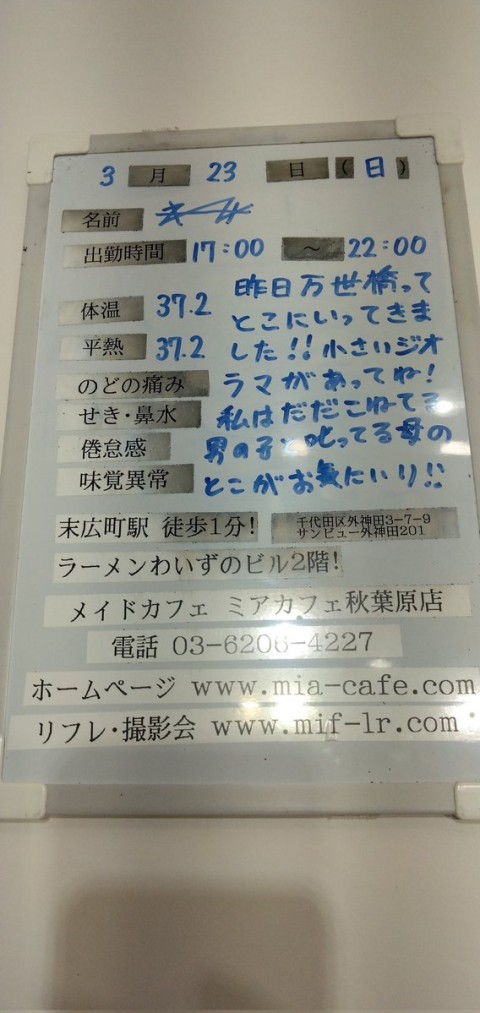 3月23日(日)
名前
出勤時間 17:00 ~ 22:00
体温 37.2
平熱 37.2
のどの痛み
せき・鼻水
倦怠感
味覚異常
昨日万世橋って
とこにいってきま
した!!小さいジオ
ラマがあってね!
私はだだこねてる
男の子と叱ってる母の
とこがお気にいり!!
末広町駅 徒歩1分!
千代田区外神田3-7-9
サンビュー外神田201
ラーメンわいずのビル2階!
メイドカフェ ミアカフェ秋葉原店
電話 03-6206-4227
ホームページ www.mia-cafe.com
リフレ・撮影会 www.mif-lr.com